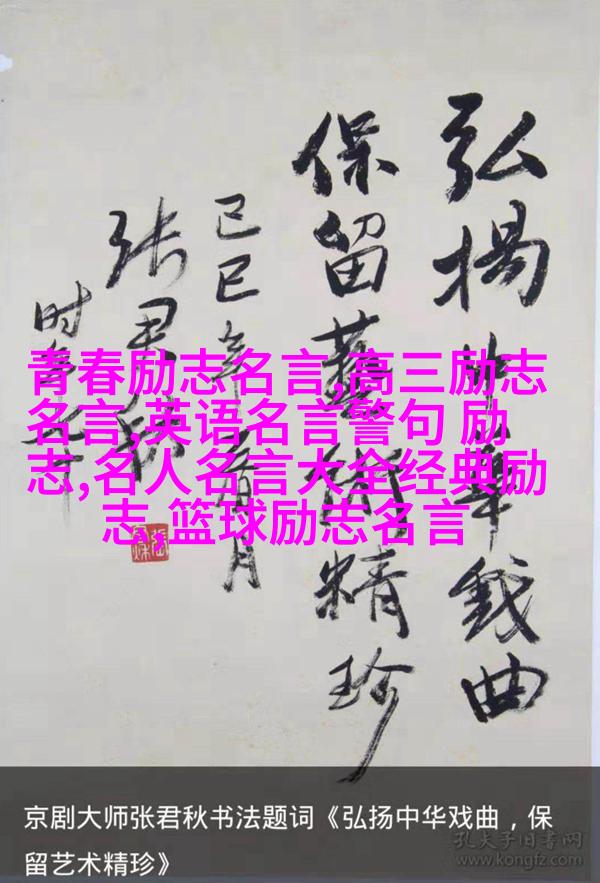 弘揚中華戏曲
保留藝術精珍
己巳年
月
张君秋
时年
青春励志名言,高三励志
名言,英语名言警句 励
志,名人名言大全经典励
志,篮球励志名言
京剧大师张君秋书法题词《弘扬中华戏曲，保
留艺术精珍》
孔夫子旧书网
www.kongfz.com